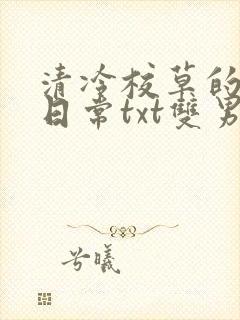 清冷校草的
日常txt雙男
兮曦